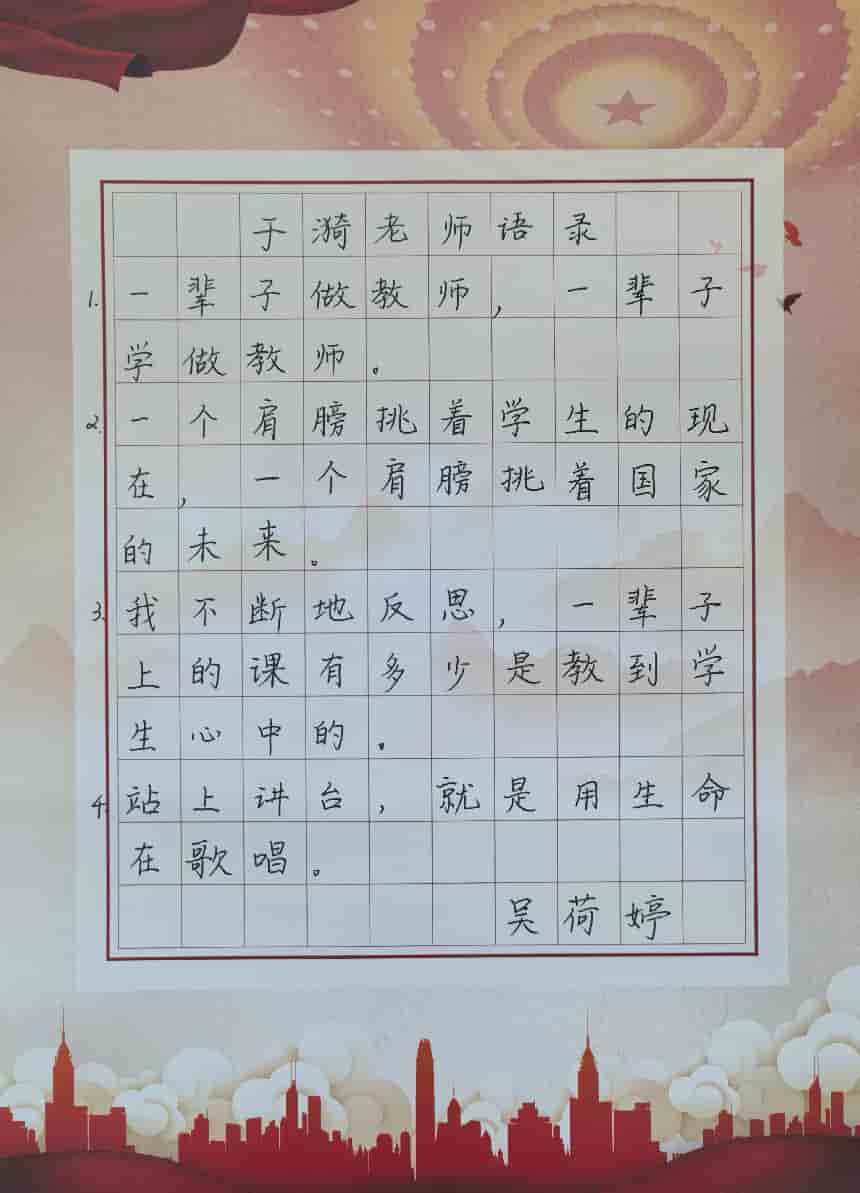 于漪老师语录
1. 一辈子做教师，一辈子
学做教师。
2. 一个肩膀挑着学生的现
在，一个肩膀挑着国家
的未来。
3. 我不断地反思，一辈子
上的课有多少是教到学
生心中的。
4. 站上讲台，就是用生命
在歌唱。
吴荷婷